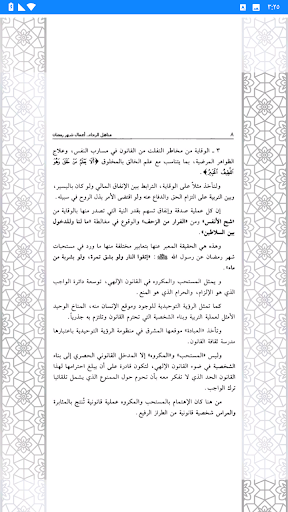 ٣:٢٥
٨
مناهل الرجاء، أعمال شهر رمضان
٣ ـ الوقاية من مخاطر التفلت من القانون في مسارب النفس، وعلاج
الظواهر المرضية، بما يتناسب مع علم الخالق بالمخلوق ﴿أَلَا يَعْلَمُ مَنْ خَلَقَ وَهُوَ
اللَّطِيفُ الْخَبِيرُ﴾.
ولنأخذ مثلاً على الوقاية، الترابط بين الإنفاق المالي ولو كان باليسير،
وبين التربية على التزام الحق والدفاع عنه ولو اقتضى الأمر بذل الروح في سبيله.
إن كل عملية صدقة وإنفاق تسهم بقدر النية التي تصدر منها بالوقاية من
«شح الأنفس» ومن «الفرار من الزحف» والوقوع في مغالطة «ما لنا والدخول
بين السلاطين».
وهذه هي الحقيقة المعبر عنها بتعابير مختلفة منها ما ورد في مستحبات
شهر رمضان عن رسول الله ﷺ: «إتقوا النار ولو بشق تمرة، ولو بشربة من
ماء».
و يمثل المستحب والمكروه في القانون الإلهي، توسعة دائرة الواجب
الذي هو الإلزام، والحرام الذي هو المنع.
كما تمثل الرؤية التوحيدية للوجود وموقع الإنسان منه، المناخ الوحيد
الأمثل لعملية التربية وبناء الشخصية التي تحترم القانون وتلتزم به جذرياً.
وتأخذ «العبادة» موقعها المشرق في منظومة الرؤية التوحيدية باعتبارها
مدرسة ثقافة القانون.
وليس «المستحب» و«المكروه» إلا المدخل القانوني الحصري إلى بناء
الشخصية في ضوء القانون الإلهي، لتكون قادرة على أن يبلغ احترامها لهذا
القانون الحد الذي لا تفكر معه أن تحوم حول الممنوع الذي يشمل تلقائيا
ترك الواجب.
من هنا كان الإهتمام بالمستحب والمكروه عملية قانونية تُنتج بالمثابرة
والمراس شخصية قانونية من الطراز الرفيع.